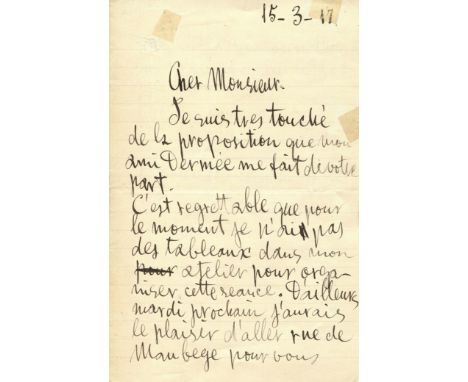 15-3-17
Cher Monsieur.
Je suis tres touché
de la proposition que mon
ami Dermée me fait de votre
part.
C'est regrettable que pour
le moment je n'ai pas
des tableaux dans mon
pour atelier pour orga-
niser cette seance. D'ailleurs
mardi prochain j'aurais
le plaisir d'aller rue de
Maubege pour vous